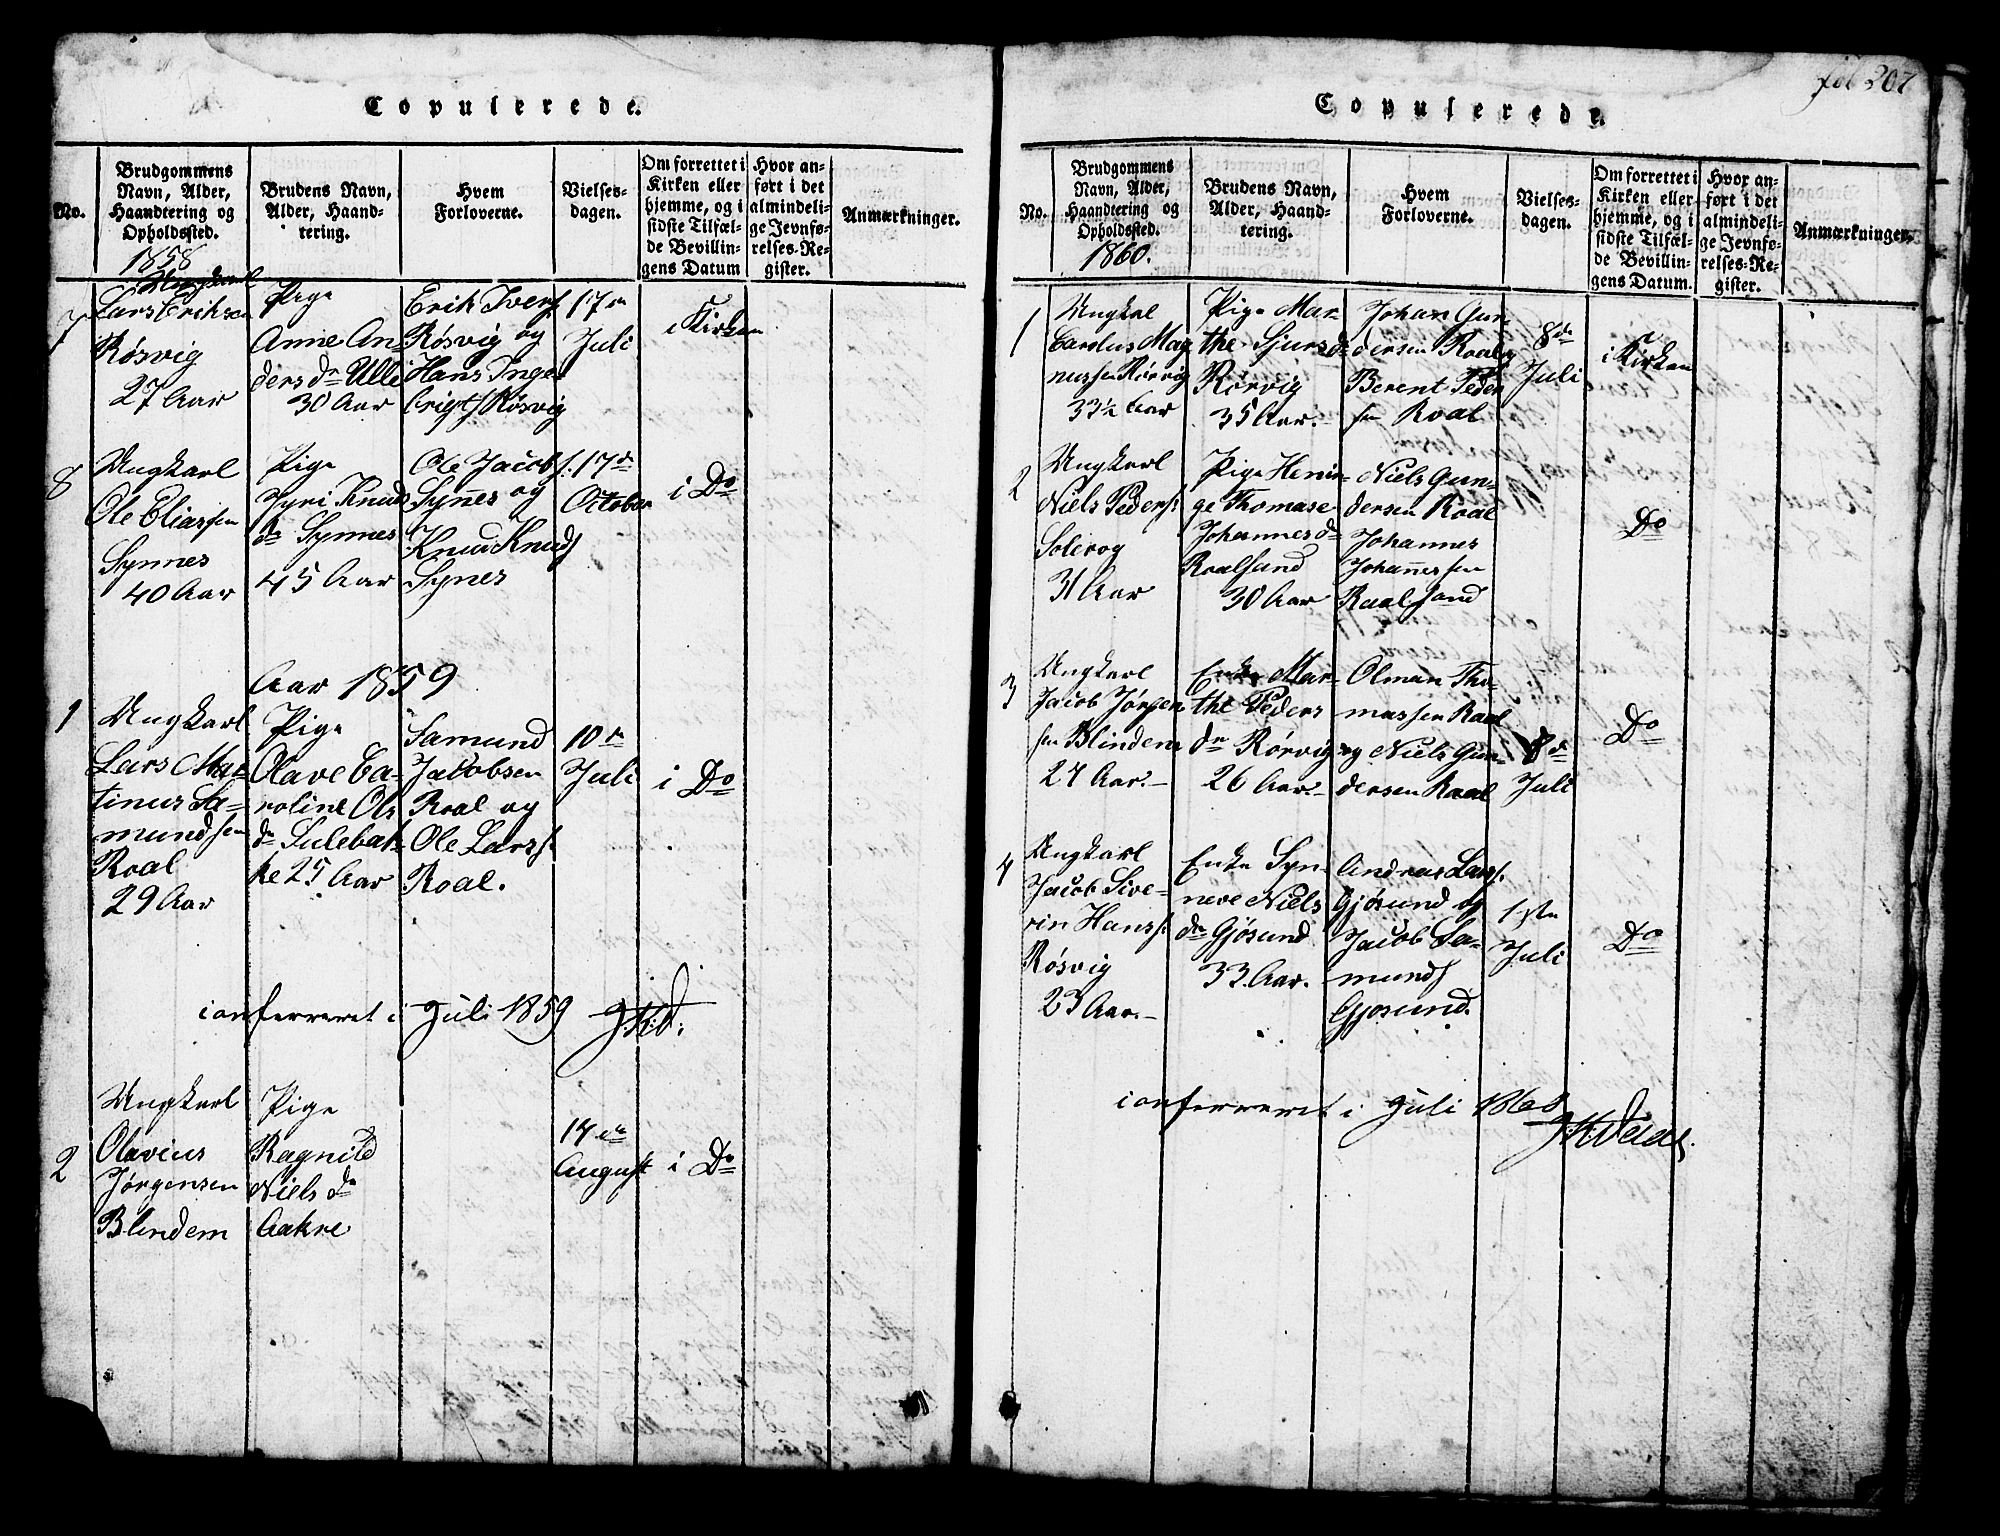 Copulerede.
No.
Brudgommens
Navn, Alder,
Haandtering og
Opholdssted.
1858
Brudens Navn,
Alder, Haand-
tering.
Hvem
Forloverne.
Vielses-
dagen.
Om forrettet i
Kirken eller
hjemme, og i
sidste Tilfæl-
de Bevillin-
gens Datum
Hvor an-
ført i det
almindeli-
ge Jevnfø-
relses-Re-
gister.
Anmærkninger.
7
Ungkarl
Lars Eriksen
Rösvig
27 Aar
Pige
Anne An-
ders dr Ulle
30 Aar
Erik Ivers
Rösvig og
Hans Inge-
brigts Rösvig
17de
Juli
i Kirken
8
Ungkarl
Ole Eliassen
Synnes
40 Aar
Pige
Jyri Knuds
dr Synnes
45 Aar
Ole Jacobs
Synnes og
Knud Knuds
Synes
17de
October
i Do
Aar 1859
1
Ungkarl
Lars Mar-
tinus Sa-
mundsen
Roal
29 Aar
Pige
Olave Ca-
roline Ols
dr Sulebak-
ke 25 Aar
Samund
Jacobsen
Roal og
Ole Larss.
Roal.
10de
Juli
i Do
conferreret i Juli 1859
2
Ungkarl
Olavius
Jørgensen
Blindem
Pige
Ragnild
Niels dr
Aakre
14de
August
i Do
fol 207
Copulerede.
No.
Brudgommens
Navn, Alder,
Haandtering og
Opholdssted.
1860.
Brudens Navn,
Alder, Haand-
tering.
Hvem
Forloverne.
Vielses-
dagen.
Om forrettet i
Kirken eller
hjemme, og i
sidste Tilfæl-
de Bevillin-
gens Datum.
Hvor an-
ført i det
almindeli-
ge Jevnfø-
relses-Re-
gister.
Anmærkninger.
1
Ungkal
Carolus Mag
nussen Rörvig
33½ Aar
Pige Mar-
the Sjursd
Rörvig
35 Aar.
Johan Gun-
dersen Roal og
Berent Peder
sen Roal
8de
Juli
i Kirken
2
Ungkarl
Niels Peders.
Solevog
31 Aar
Pige Henin-
ge Thomase
Johannesd
Roalsand
30 Aar
Niels Gun-
dersen Roal
Johannes
Johannessen
Roalsand
Do
3
Ungkarl
Jacob Jørgen
sen Blindem
27 Aar.-
Enke Mar-
the Peders
dr Rörvig
26 Aar.-
Olman Tho-
massen Roal
og Niels Gun-
dersen Roal
8de
Juli
Do
4
Ungkarl
Jacob Sive-
rin Hanss.
Rösvig
23 Aar.-
Enke Syn-
neve Niels
dr Gjösund
33 Aar.
Andreas Larss.
Gjösund og
Jacob Sa-
munds
Gjosund.
1ste
Juli
Do
conferreret i Juli 1860